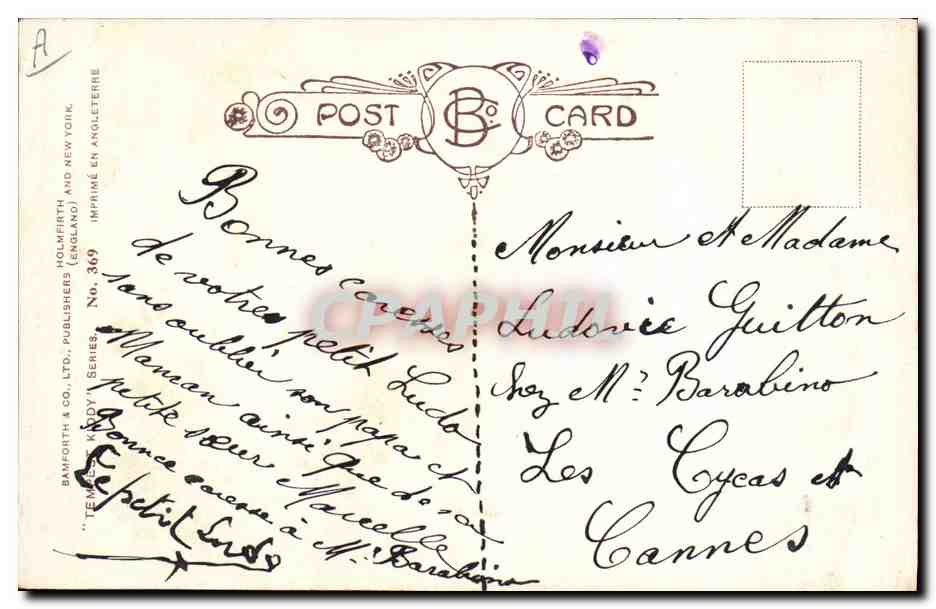 A
POST CARD
B Co.
BAMFORTH & CO., LTD., PUBLISHERS HOLMFIRTH (ENGLAND) AND NEW YORK.
"TEMPEST KIDDY" SERIES. No. 369 IMPRIMÉ EN ANGLETERRE
Bonnes caresses
de votres petit Ludo
sans oublier son papa et
Maman ainsi que de sa
petite sœur Marcelle
Bonne caresse à Mr Barabino
Le petit Ludo
Monsieur et Madame
Ludovic Guitton
chez Mr Barabino
Les Cycas
Cannes
CPAPHIL